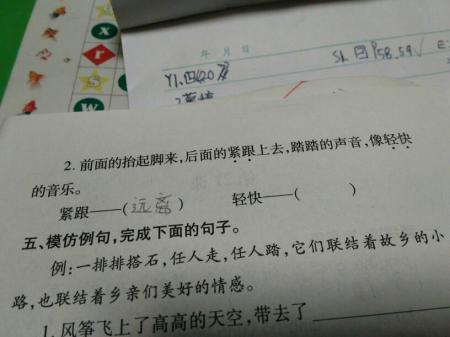 年 月 日
2. 前面的抬起脚来,后面的紧跟上去,踏踏的声音,像轻快
的音乐。
紧跟——(远离) 轻快——( )
五、模仿例句,完成下面的句子。
例:一排排搭石,任人走,任人踏,它们联结着故乡的小
路,也联结着乡亲们美好的情感。
1. 风筝飞上了高高的天空,带去了